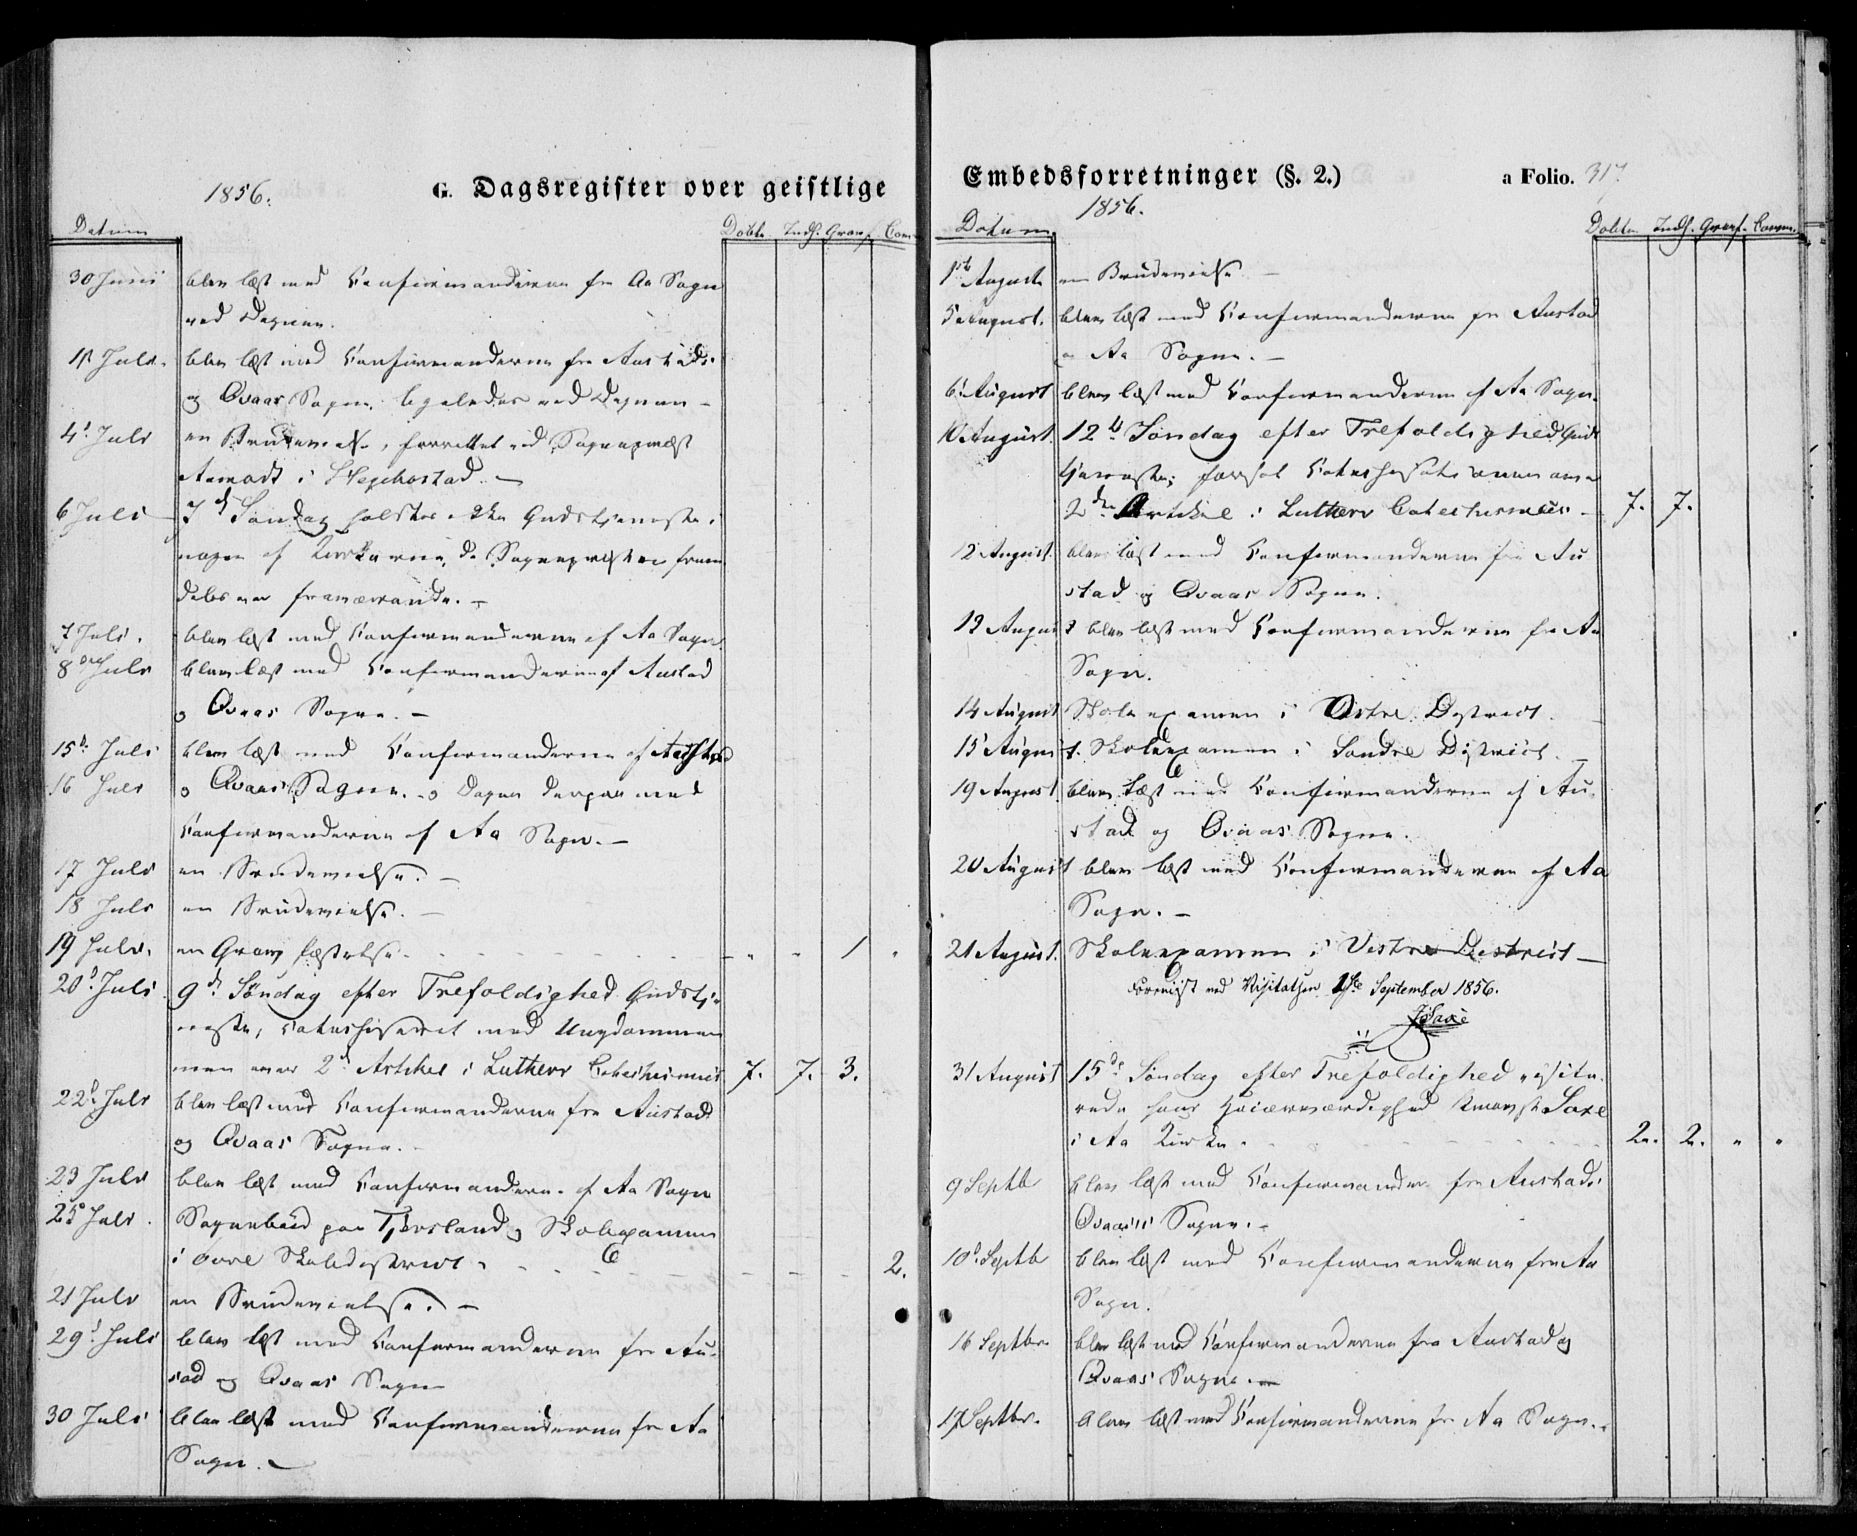 G. Dagsregister over geistlige
1856.
Datum Döbte Indl. Graf. Com
30 Juni blev læst med Confirmanderne fra Aa Sogn
ved Degnen.
1st Juli. blev læst med Confirmanderne fra Austads
og Qvaas Sogne, ved Degnen –
4d Juli en Brudevielse, forrettet ved Sogneprest
Aamodt i Hegebostad. –
6 Juli 7d Søndag holdtes ikke Gudstjeneste i
nogen af Kirkerne, da Sognepresten
fraværende. –
7 Juli. blev læst med Confirmanderne af Aa Sogn
8de Juli blev læst med Confirmanderne af Austad
o Qvaas Sogne. –
15d Juli blev læst med Confirmanderne af Austad
16 Juli o Qvaas Sogne. o Dagen derpaa med
Confirmanderne af Aa Sogn. –
17 Juli en Brudevielse. –
18 Juli en Brudevielse. –
19 Juli. en Gravfæstelse. 1
20d Juli. 9d Søndag efter Trefoldighed Gudstje
neste, Catechiseret med Ungdommen
over 2d Artikel i Luthers Catechismus 7. 7. 3.
22d Juli blev læst med Confirmanderne fra Austad
og Qvaas Sogne. –
23 Juli blev læst med Confirmanderne af Aa Sogn
25 Juli. Sognebud paa Tjersland og Skolexamen
i øvre Skoledistrict 2.
21 Juli en Brudevielse. –
29d Juli blev læst med Confirmanderne fra Au-
stad og Qvaas Sogne
30 Juli blev læst med Confirmanderne fra Aa
Sogn. –
Embedsforretninger (§. 2.) a Folio. 317.
1856.
Datum Döbte Indl. Graf. Comm.
1st August en Brudevielse –
5 August. blev læst med Confirmanderne fra Austad
o Aa Sogne. –
6 August blev læst med Confirmanderne af Aa Sogn.
10 August. 12te Søndag efter Trefoldighed Guds
tjeneste,
2den Artikel i Luthers Catechismus – 7. 7.
12 August. blev læst med Confirmanderne fra Au
stad og Qvaas Sogne.
13 August blev læst med Confirmanderne fra Aa
Sogn.
14 August Skolexamen i Østre District.
15 August. Skolexamen i Søndre District. –
19 August. blev læst med Confirmanderne af Au-
stad og Qvaas Sogne.
20 August blev læst med Confirmanderne af Aa
Sogn. –
21 August. Skolexamen i Vestre District –
Foreviist ved Visitatsen 1ste September 1856.
JSaxe
31 August 15de Søndag efter Trefoldighed visite-
rede hans Høiærværdighed Provst Saxe
i Aa Kirke. 2. 2. " "
9 Septb blev læst med Confirmander fra Austad
Qvaas Sogne. –
10d Septb blev læst med Confirmanderne fra Aa
Sogn.
16 Septbr. blev læst med Confirmanderne fra Austad og
Qvaas Sogne. –
17 Septbr. blev læst med Confirmanderne fr Aa Sogn. –